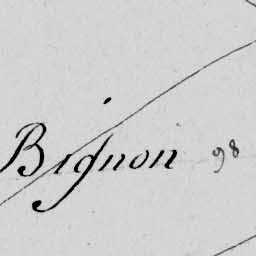 Bignon 98